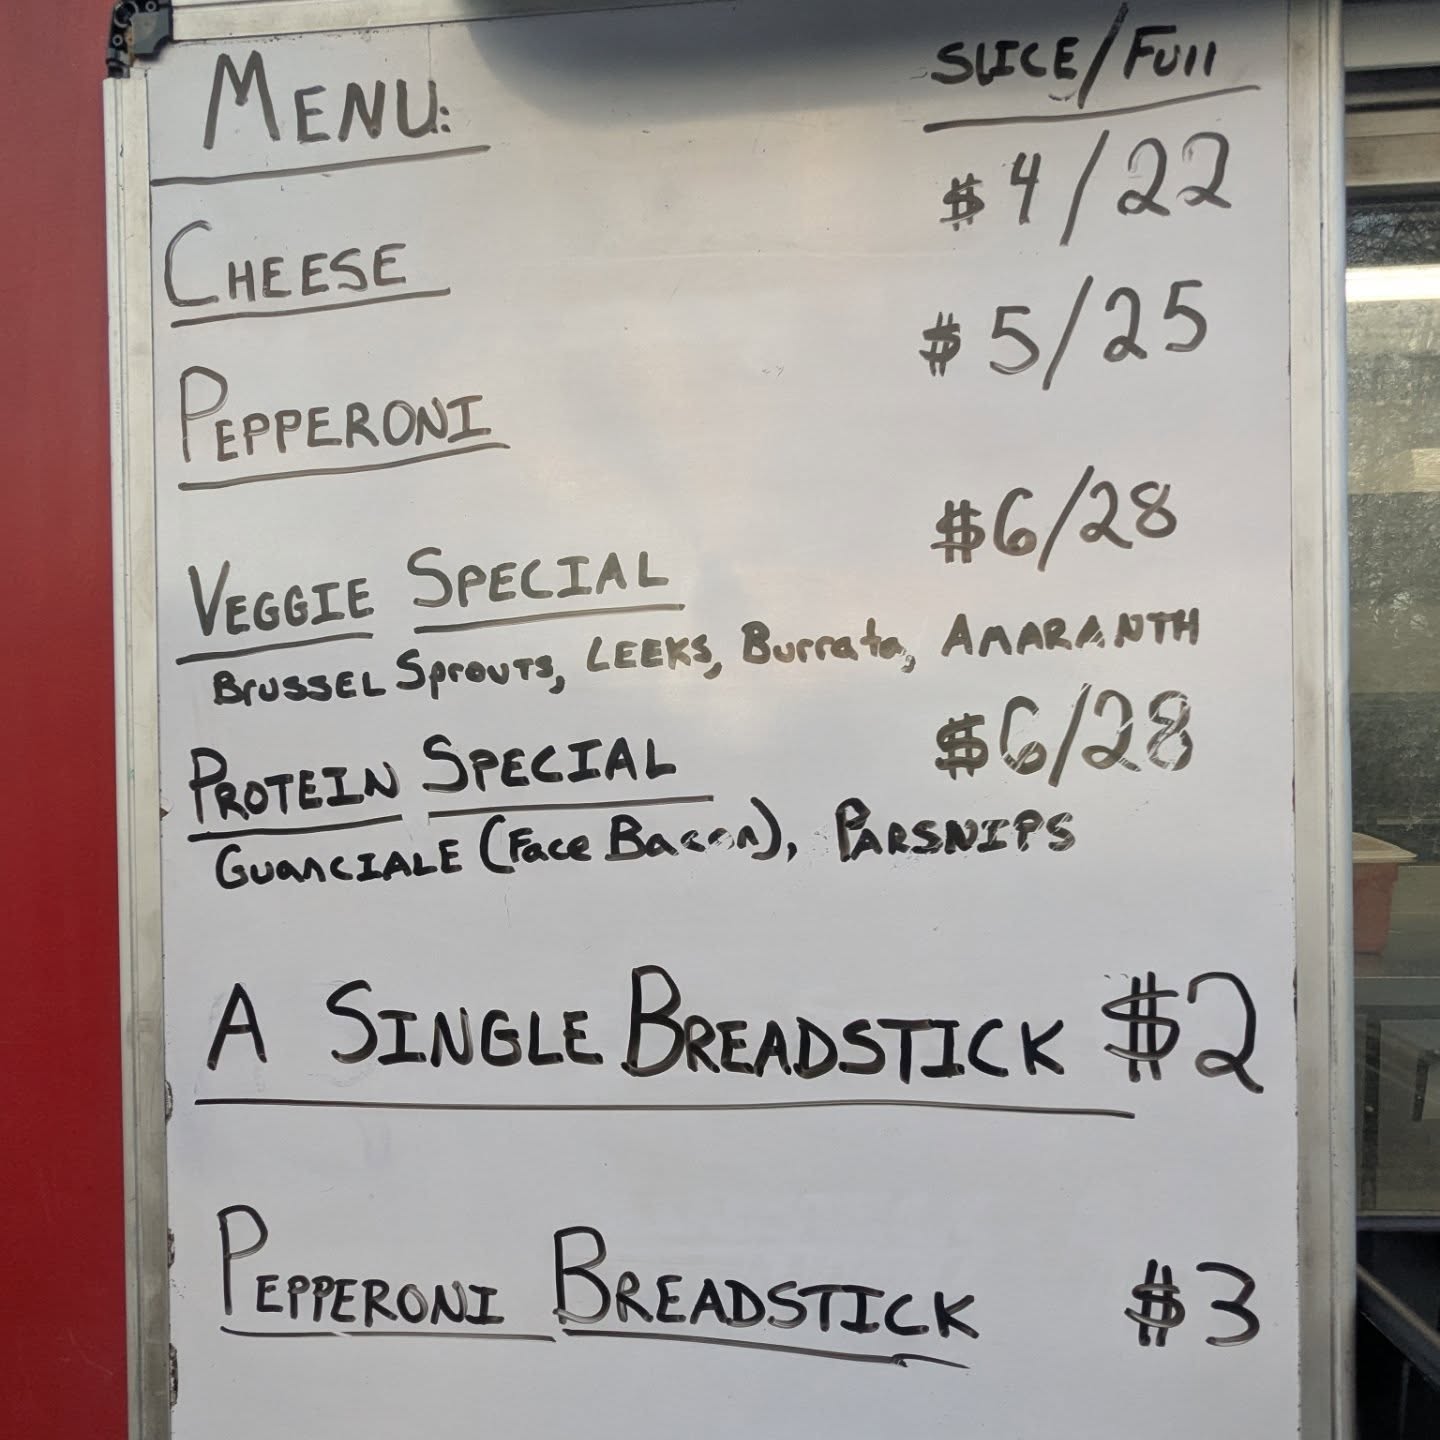 MENU: SLICE/Full
CHEESE $4/22
PEPPERONI $5/25
VEGGIE SPECIAL $6/28
BrUSSEL SproUTS, LEEKS, Burrata, AMARANTH
PROTEIN SPECIAL $6/28
GuanCIALE (Face Bacon), PARSNIPS
A SINGLE BREADSTICK $2
PEPPERONI BREADSTICK $3